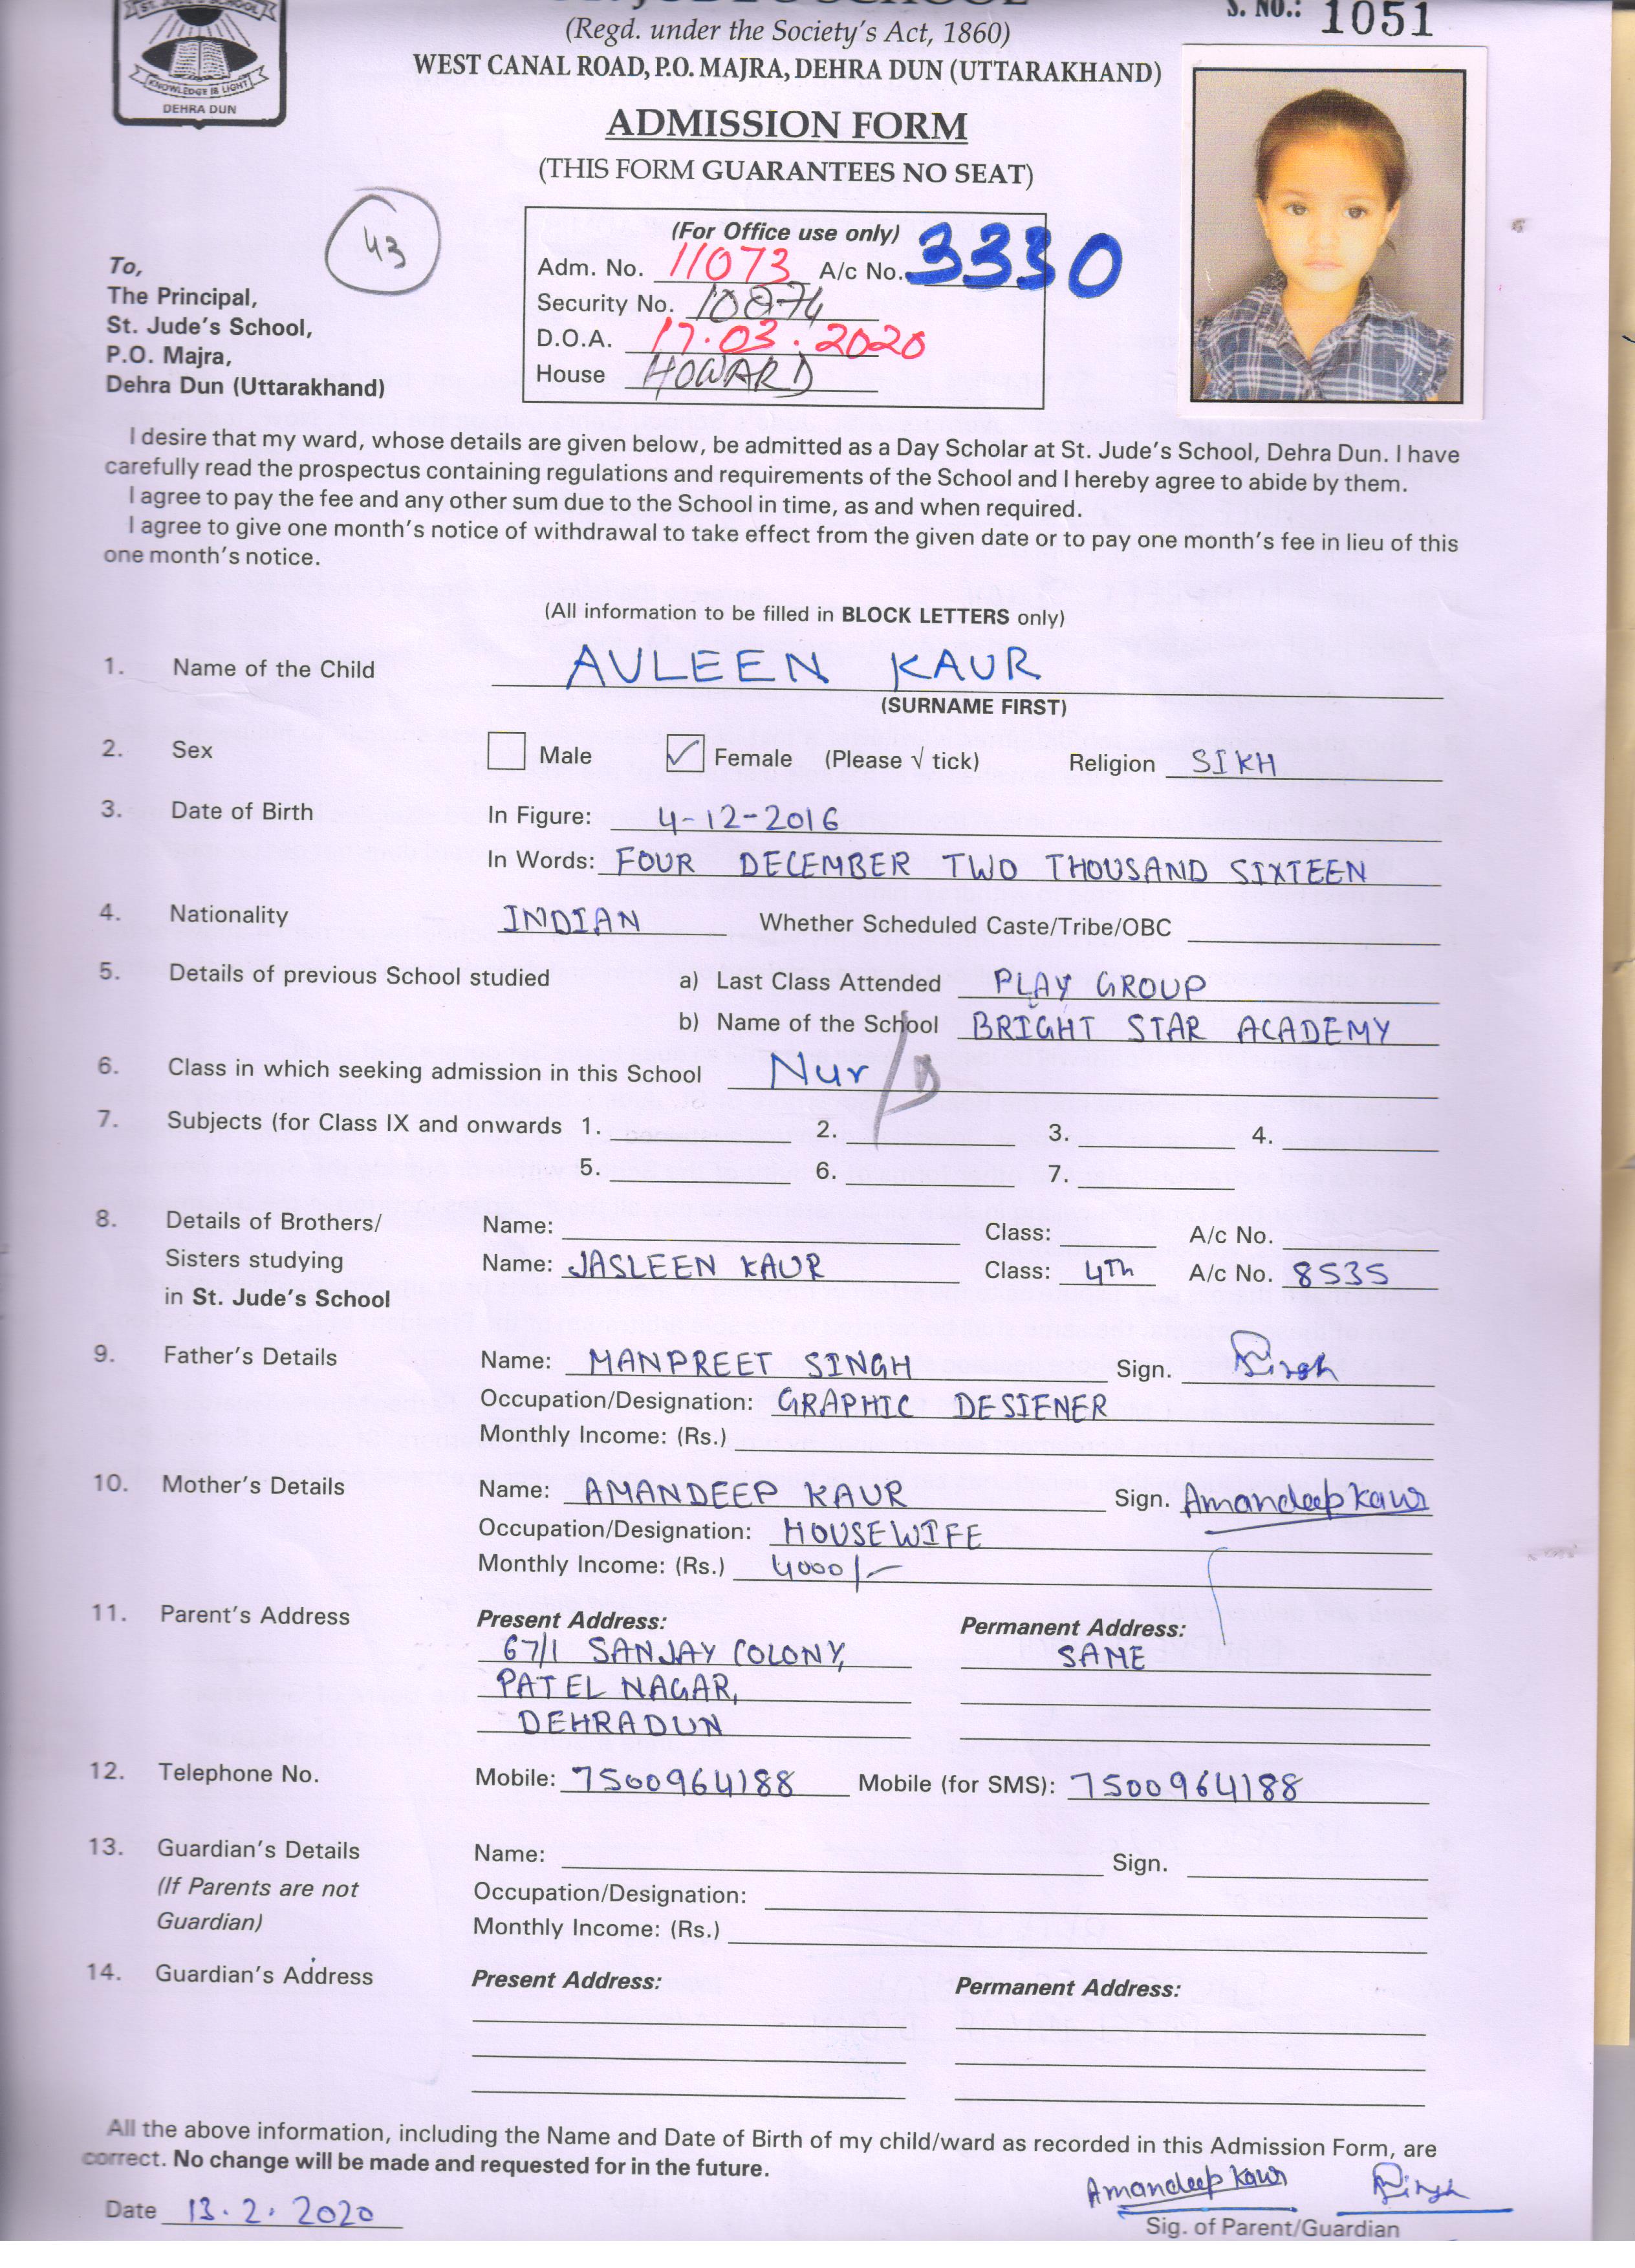 ST. JUDE'S SCHOOL
S. NO.: 1051
(Regd. under the Society's Act, 1860)
WEST CANAL ROAD, P.O. MAJRA, DEHRA DUN (UTTARAKHAND)
KNOWLEDGE IS LIGHT
DEHRA DUN
ADMISSION FORM
(THIS FORM GUARANTEES NO SEAT)
43
(For Office use only)
Adm. No. 11073 A/c No. 3330
Security No. 10874
D.O.A. 17.03.2020
House HOWARD
To,
The Principal,
St. Jude's School,
P.O. Majra,
Dehra Dun (Uttarakhand)
I desire that my ward, whose details are given below, be admitted as a Day Scholar at St. Jude's School, Dehra Dun. I have
carefully read the prospectus containing regulations and requirements of the School and I hereby agree to abide by them.
I agree to pay the fee and any other sum due to the School in time, as and when required.
I agree to give one month's notice of withdrawal to take effect from the given date or to pay one month's fee in lieu of this
one month's notice.
(All information to be filled in BLOCK LETTERS only)
1. Name of the Child AVLEEN KAUR
(SURNAME FIRST)
2. Sex Male ✓ Female (Please √ tick) Religion SIKH
3. Date of Birth In Figure: 4-12-2016
In Words: FOUR DECEMBER TWO THOUSAND SIXTEEN
4. Nationality INDIAN Whether Scheduled Caste/Tribe/OBC
5. Details of previous School studied a) Last Class Attended PLAY GROUP
b) Name of the School BRIGHT STAR ACADEMY
6. Class in which seeking admission in this School Nur/D
7. Subjects (for Class IX and onwards 1. 2. 3. 4.
5. 6. 7.
8. Details of Brothers/ Name: Class: A/c No.
Sisters studying Name: JASLEEN KAUR Class: 4Th A/c No. 8535
in St. Jude's School
9. Father's Details Name: MANPREET SINGH Sign. Singh
Occupation/Designation: GRAPHIC DESIENER
Monthly Income: (Rs.)
10. Mother's Details Name: AMANDEEP KAUR Sign. Amandeep Kaur
Occupation/Designation: HOUSEWIFE
Monthly Income: (Rs.) 4000/-
11. Parent's Address Present Address: Permanent Address:
67/1 SANJAY COLONY, SAME
PATEL NAGAR,
DEHRADUN
12. Telephone No. Mobile: 7500964188 Mobile (for SMS): 7500964188
13. Guardian's Details Name: Sign.
(If Parents are not Occupation/Designation:
Guardian) Monthly Income: (Rs.)
14. Guardian's Address Present Address: Permanent Address:
All the above information, including the Name and Date of Birth of my child/ward as recorded in this Admission Form, are
correct. No change will be made and requested for in the future.
Amandeep Kaur Singh
Date 13.2.2020
Sig. of Parent/Guardian